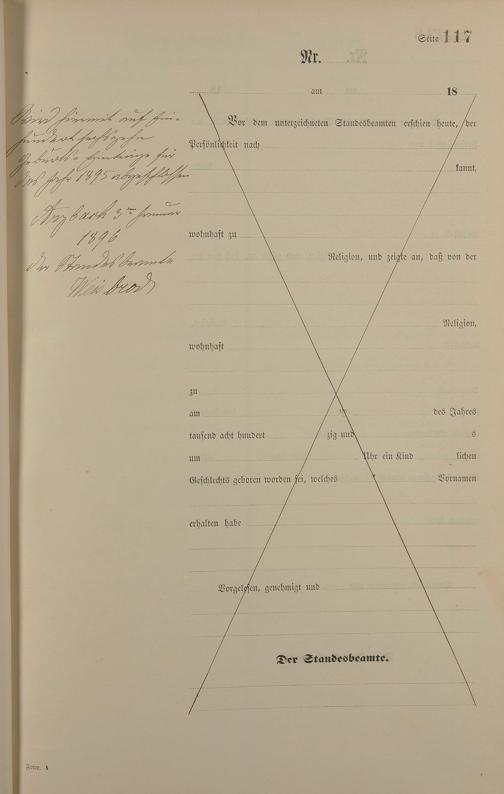 Seite 117
Nr.
am 18
Vor dem unterzeichneten Standesbeamten erschien heute, der
Persönlichkeit nach
kannt,
wohnhaft zu
Religion, und zeigte an, daß von der
Religion,
wohnhaft
zu
am ten des Jahres
tausend acht hundert zig und s
um Uhr ein Kind lichen
Geschlechts geboren worden sei, welches Vornamen
erhalten habe
Vorgelesen, genehmigt und
Der Standesbeamte.
Wird hiermit auf Ein-
hundertsechszehn
Geburts-Einträge für
das Jahr 1895 abgeschlossen
Arzbach 3ten Januar
1896
Der Standesbeamte
Weisbrod
Form. A